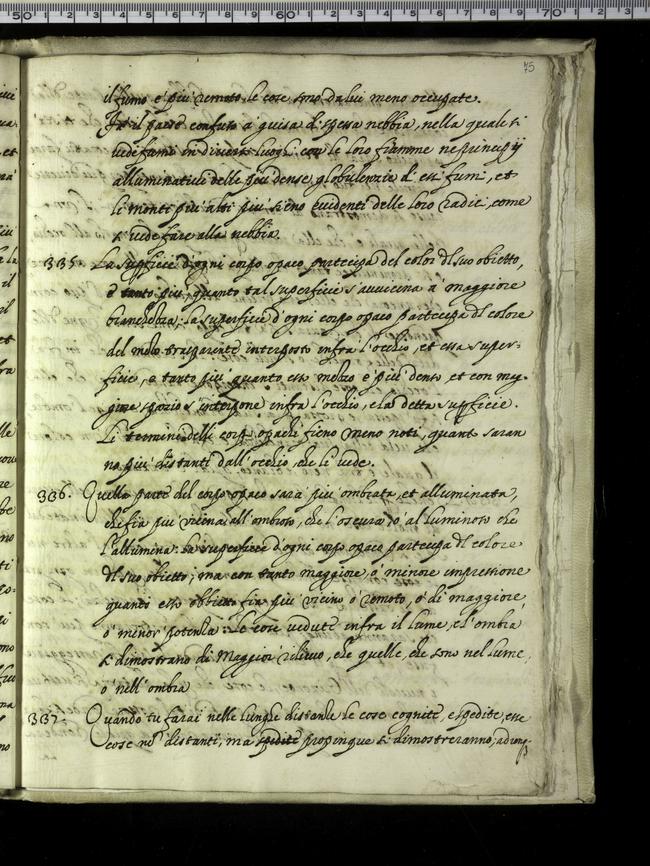 75
il fumo è più remoto le cose sono da lui meno occupate.
Fa il paese confuso à guisa di spessa nebbia, nella quale si
vede fumi in diversi luoghi con le loro fiamme ne principij
alluminativi delle più dense globulenzie di essi fumi, et
li monti più alti più sieno evidenti delle loro radici, come
si vede fare alla nebbia.
335. La supfficie d'ogni corpo opaco partecipa del color dl suo obietto,
è tanto più, quanto tal superficie s'avvicina à maggiore
bianchezza: la superficie d'ogni corpo opaco partecipa dl colore
del mezo trasparente interposto infra l'occhio, et essa super-
ficie, e tanto più quanto esso mezzo è più denso, et con mag-
giore spazio s'interpone infra l'occhio, e la detta supfficie.
Li termini delli corpi opachi fieno meno noti, quanto saran
no più distanti dall'occhio, che li vede.
336. Quella parte del corpo opaco sarà più ombrata, et alluminata,
che fia più vicina all'ombroso, che l'oscura, o al luminoso che
l'allumina. La superficie d'ogni corpo opaco partecipa dl colore
dl suo obietto; ma con tanto maggiore, ò minore impressione
quanto esso obbietto fia più vicino ò remoto, ò di maggiore,
ò minor potenza: le cose vedute infra il lume, e l'ombra
si dimostrano di Maggior rilievo, che quelle, che sono nel lume,
ò nell'ombra
337. Quando tu farai nelle lunghe distanze le cose cognite, e spedite, esse
cose no distanti, ma propinque si dimostreranno; adunq